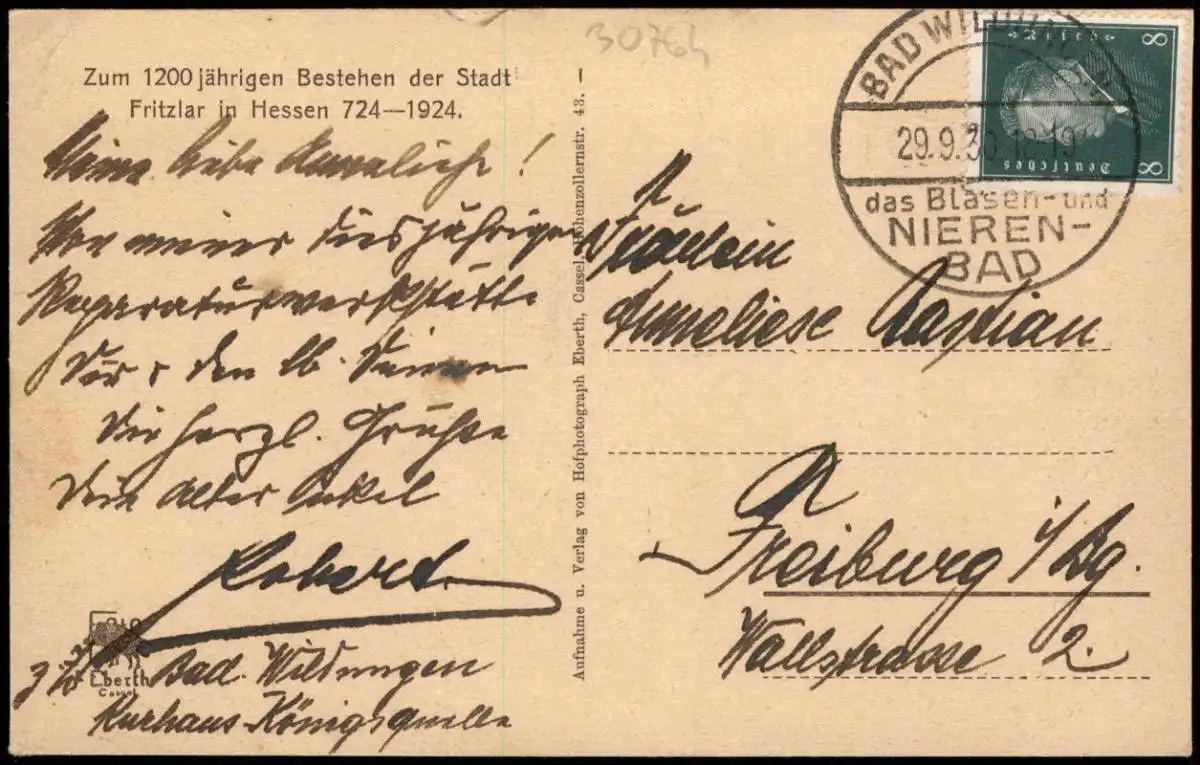 30764
Zum 1200jährigen Bestehen der Stadt
Fritzlar in Hessen 724—1924.
Meine liebe Anneliese!
Von meiner diesjährigen
Reparaturwerkstätte
Dir u den lb. Deinen
die herzl. Grüsse
dein alter Onkel
Robert.
z. Zt. Bad. Wildungen
Kurhaus Königsquelle
Eberth
Cassel
Aufnahme u. Verlag von Hofphotograph Eberth, Cassel, Hohenzollernstr. 43.
BAD WILDUNGEN
29.9.30 18-19
das Blasen- und
NIEREN-
BAD
Deutsches
Reich
8
8
Fräulein
Anneliese Bastian
Freiburg i/Bg.
Wallstrasse 2.